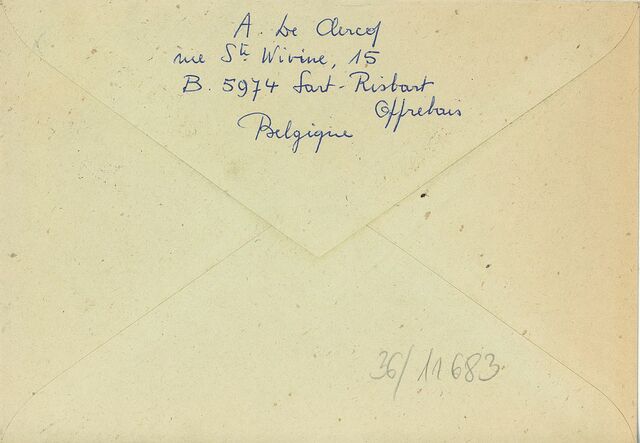 A. De Clercq
rue Ste Wivine, 15
B. 5974 Sart-Risbart
Offrebais
Belgique
36/11683